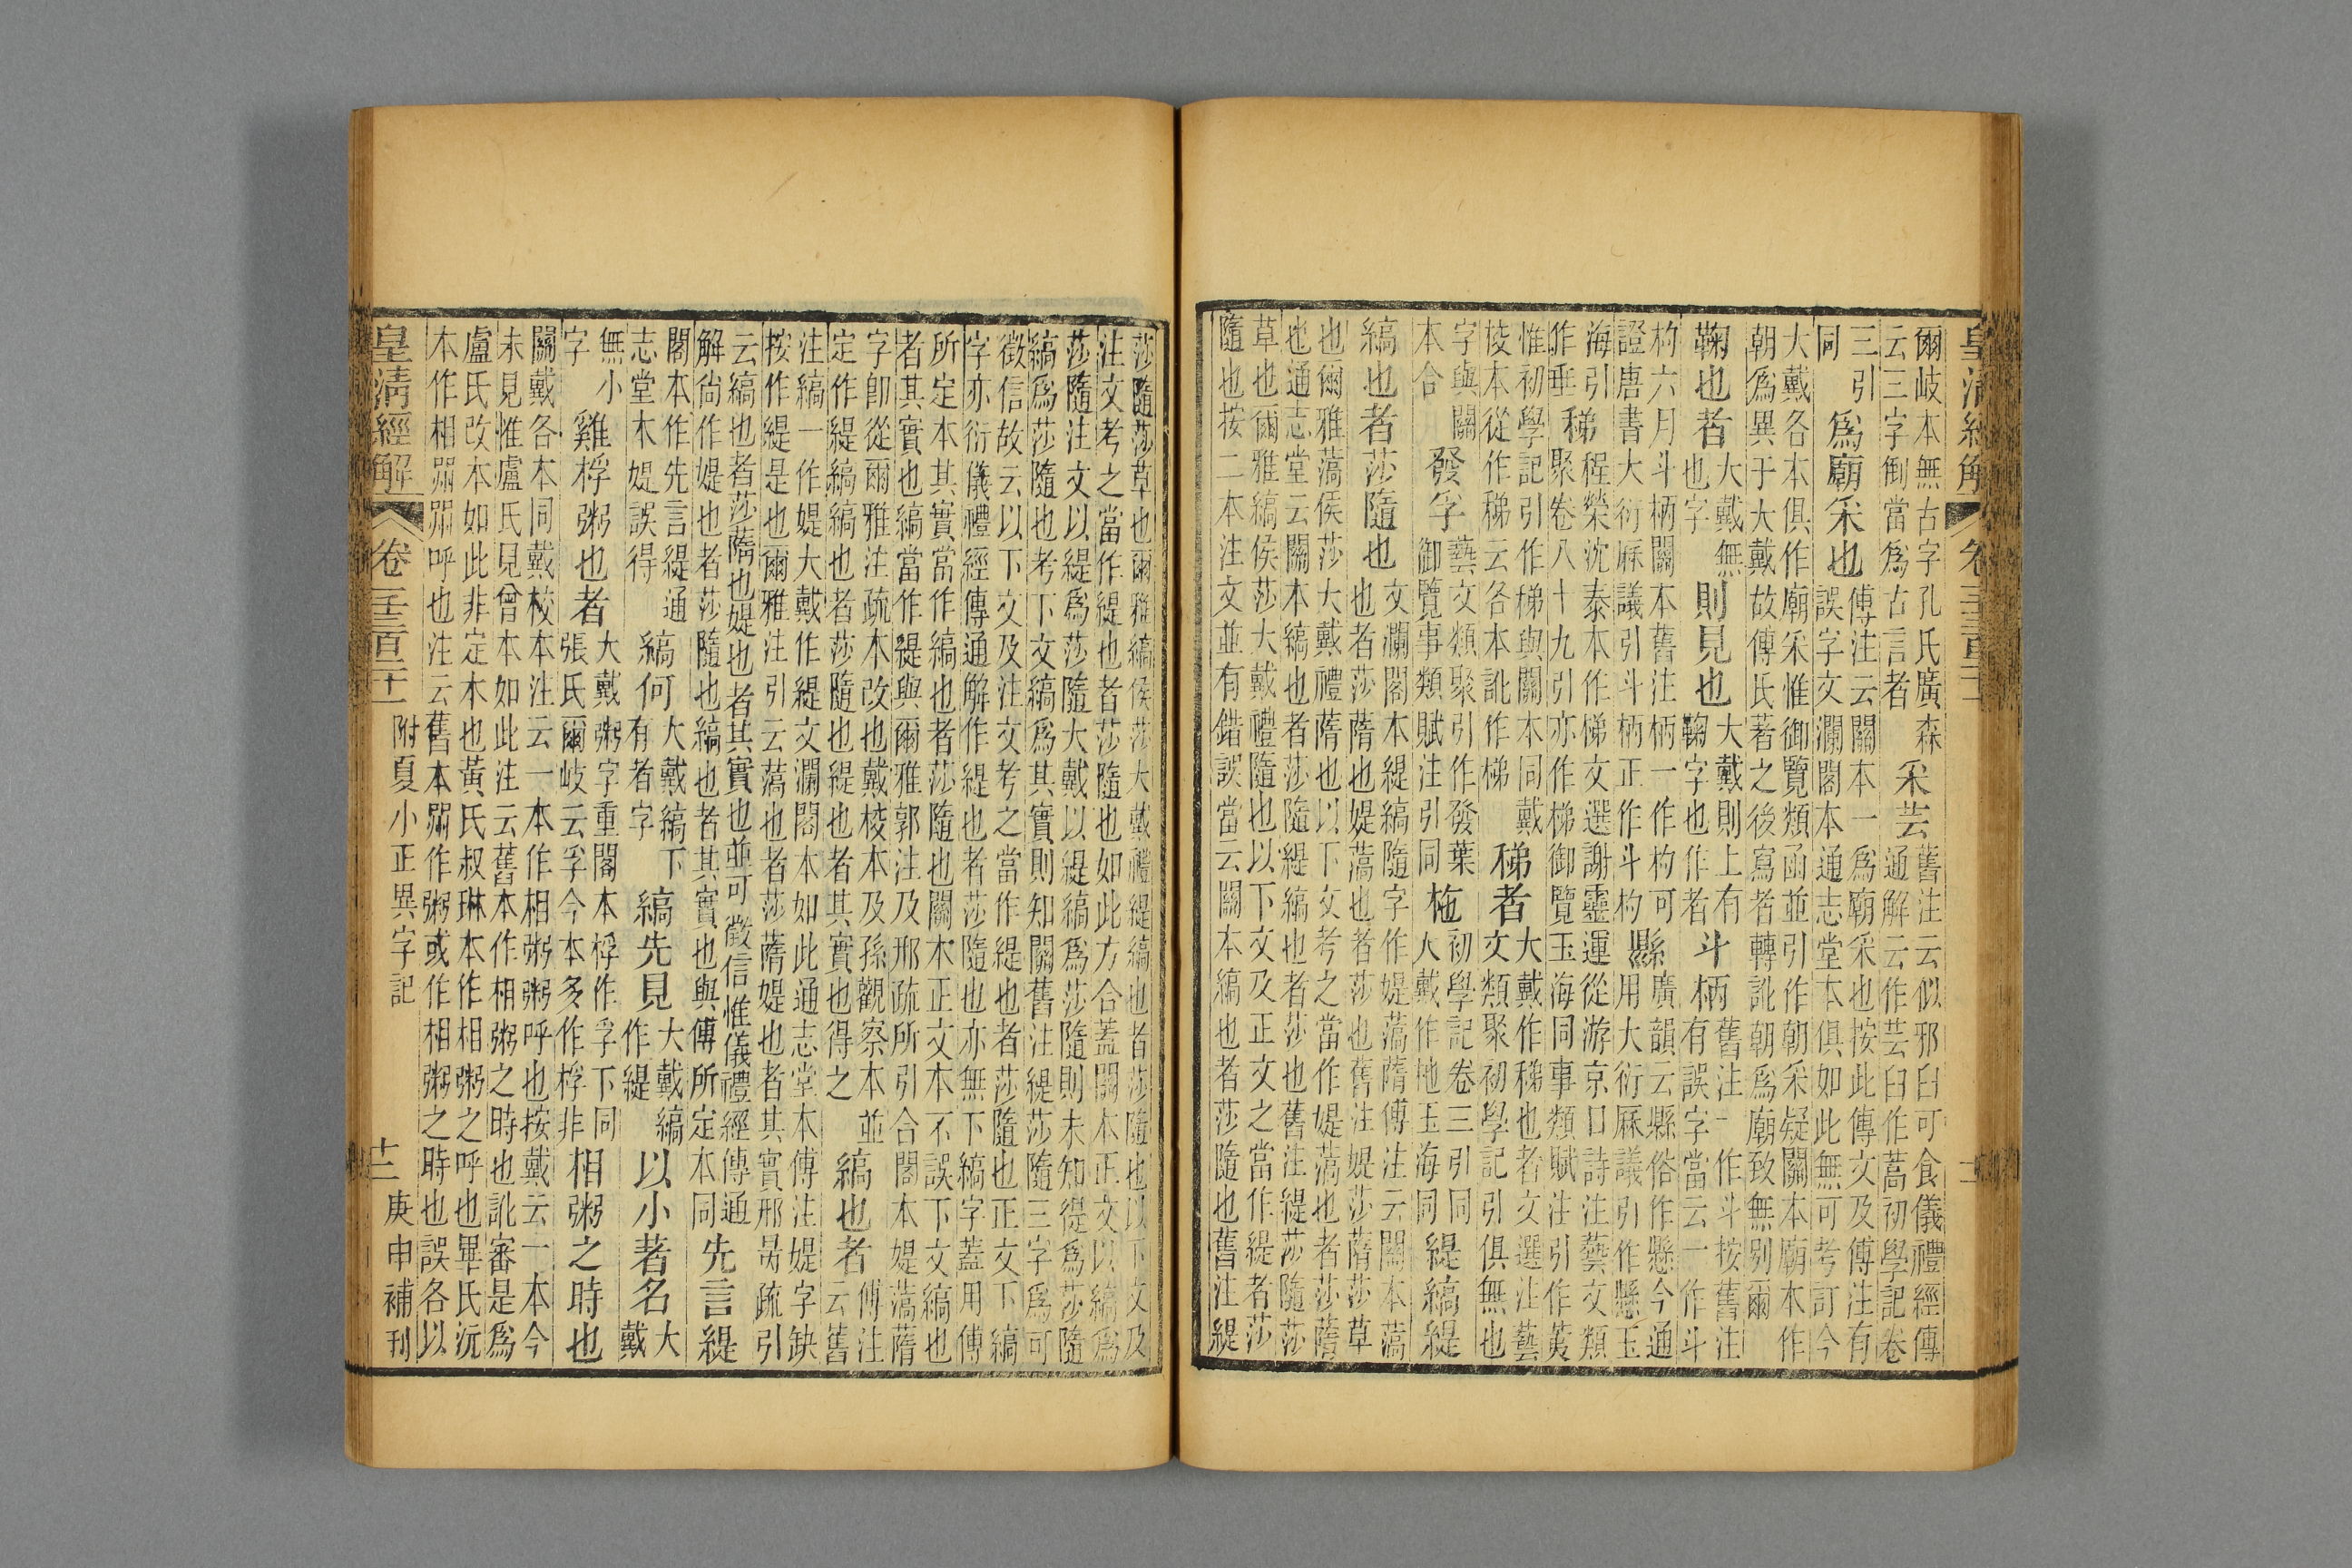 皇清經解
爾岐本無古字孔氏廣森
云三字倒當爲古言者
采芸
舊注云似邪臼可食儀禮經傳
通解云作芸臼作蒿初學記卷
三引
同
爲廟采也
傳注云關本一爲廟采也按此傳文及傅注有
誤字文瀾閣本通志堂本俱如此無可考訂今
大戴各本俱作廟采惟御覽類函並引作朝采疑關本廟本作
朝爲異于大戴故傅氏著之後寫者轉訛朝爲廟致無別爾
鞠也者
大戴無
也字
則見也
大戴則上有
鞠字也作者
斗柄
舊注一作斗按舊注
有誤字當云一作斗
杓六月斗柄關本舊注柄一作杓可
證唐書大衍厤議引斗柄正作斗杓
縣
廣韻云縣俗作懸今通
用大衍厤議引作懸玉
海引
作垂
稊
程榮沈泰本作梯文選謝靈運從游京口詩注藝文類
聚卷八十九引亦作梯御覽玉海同事類賦注引作荑
惟初學記引作稊與關本同戴
校本從作稊云各本訛作梯
稊者
大戴作稊也者文選注藝
文類聚初學記引俱無也
字與關
本合
發孚
藝文類聚引作發葉
御覽事類賦注引同
柂
初學記卷三引同
大戴作杝玉海同
緹縞緹
縞也者莎隨也
文瀾閣本緹縞隨字作媞蒿蓨傅注云關本蒿
也者莎蓨也媞蒿也者莎也舊注媞莎蓨莎草
也爾雅蒿侯莎大戴禮蓨也以下文考之當作媞蒿也者莎蓨
也通志堂云關本縞也者莎隨緹縞也者莎也舊注緹莎隨莎
草也爾雅縞侯莎大戴禮隨也以下文及正文之當作緹者莎
隨也按二本注文並有錯誤當云關本縞也者莎隨也舊注緹
莎隨莎草也爾雅縞侯莎大戴禮緹縞也者莎隨也以下文及
注文考之當作緹也者莎隨也如此方合蓋關本正文以縞爲
莎隨注文以緹爲莎隨大戴以緹縞爲莎隨則未知從爲莎隨
縞爲莎隨也考下文縞爲其實則知關舊注緹莎隨三字爲可
徵信故云以下文及注文考之當作緹也者莎隨也正文下縞
字亦衍儀禮經傳通解作緹也者莎隨也亦無下縞字蓋用傅
所定本其實當作縞也者莎隨也關本正文本不誤下文縞也
者其實也縞當作緹與爾雅郭注及邢疏所引合閣本媞蒿蓨
字卽從爾雅注疏本改也戴校本及孫觀察本並
定作緹縞也者莎隨也緹也者其實也得之
縞也者
傅注
云舊
注縞一作媞大戴作緹文瀾閣本如此通志堂本傅注媞字缺
按作緹是也爾雅注引云蒿也者莎蓨媞也者其實邢昺疏引
云縞也者莎蓨也媞也者其實也並可徵信惟儀禮經傳通
解尙作媞也者莎隨也縞也者其實也與傅所定本同
先言緹
閣本作先言緹通
志堂本媞誤得
縞何
大戴縞下
有者字
縞先見
大戴縞
作緹
以小著名
大
戴
無小
字
雞桴粥也者
大戴粥字重閣本桴作孚下同
張氏爾岐云孚今本多作桴非
相粥之時也
關戴各本同戴校本注云一本作相粥粥呼也按戴云一本今
未見惟盧氏見曾本如此注云舊本作相粥之時也訛審是爲
盧氏改本如此非定本也黃氏叔琳本作相粥之呼也畢氏沅
本作相鬻鬻呼也注云舊本鬻作粥或作相粥之時也誤各以
皇清經解
卷一千三百二十一
附夏小正異字記
十二
庚申補刊